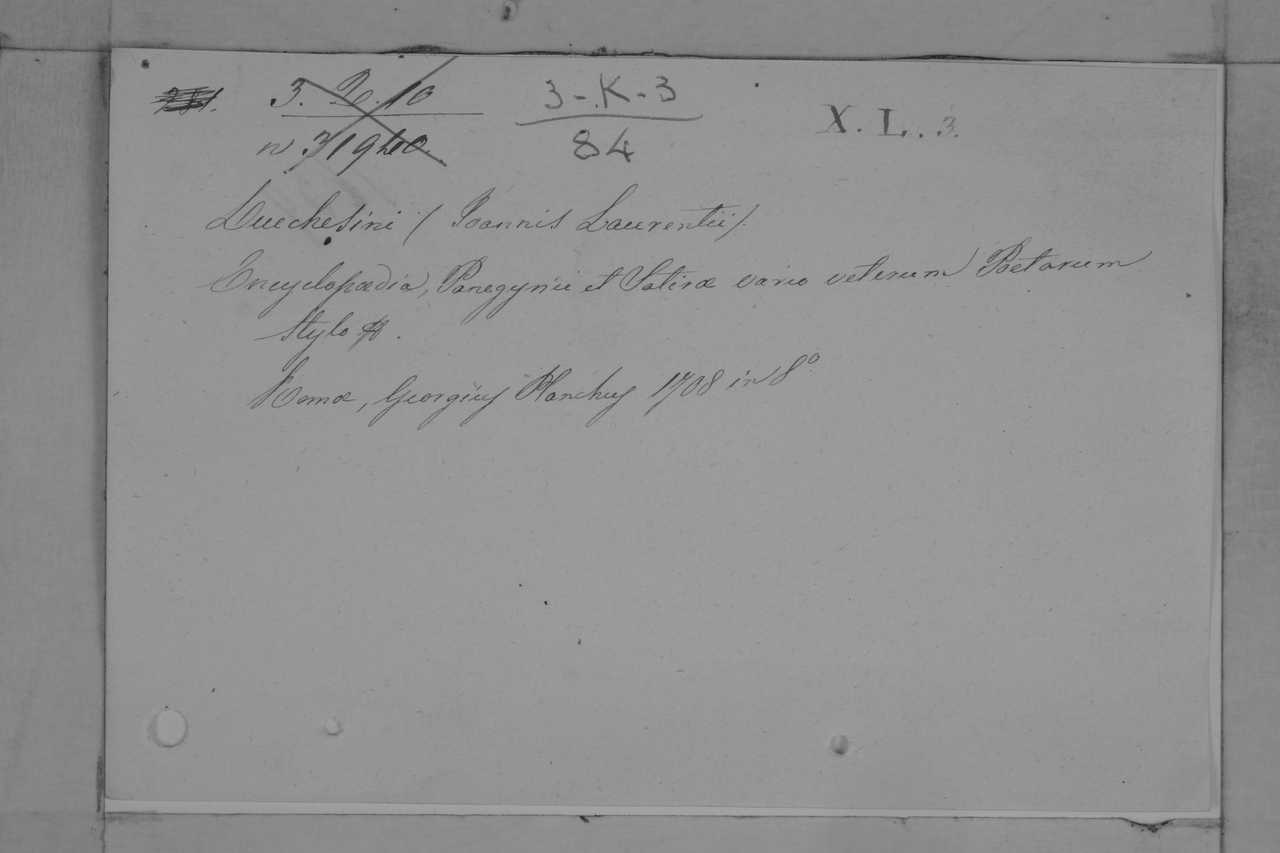 3-K-3
84
X. L. 3.
Lucchesini (Joannis Laurentii).
Encyclopædia, Panegyrici et Satiræ vario veterum Poetarum
stylo &.
Romæ, Georgius Planchus 1708 in 8º